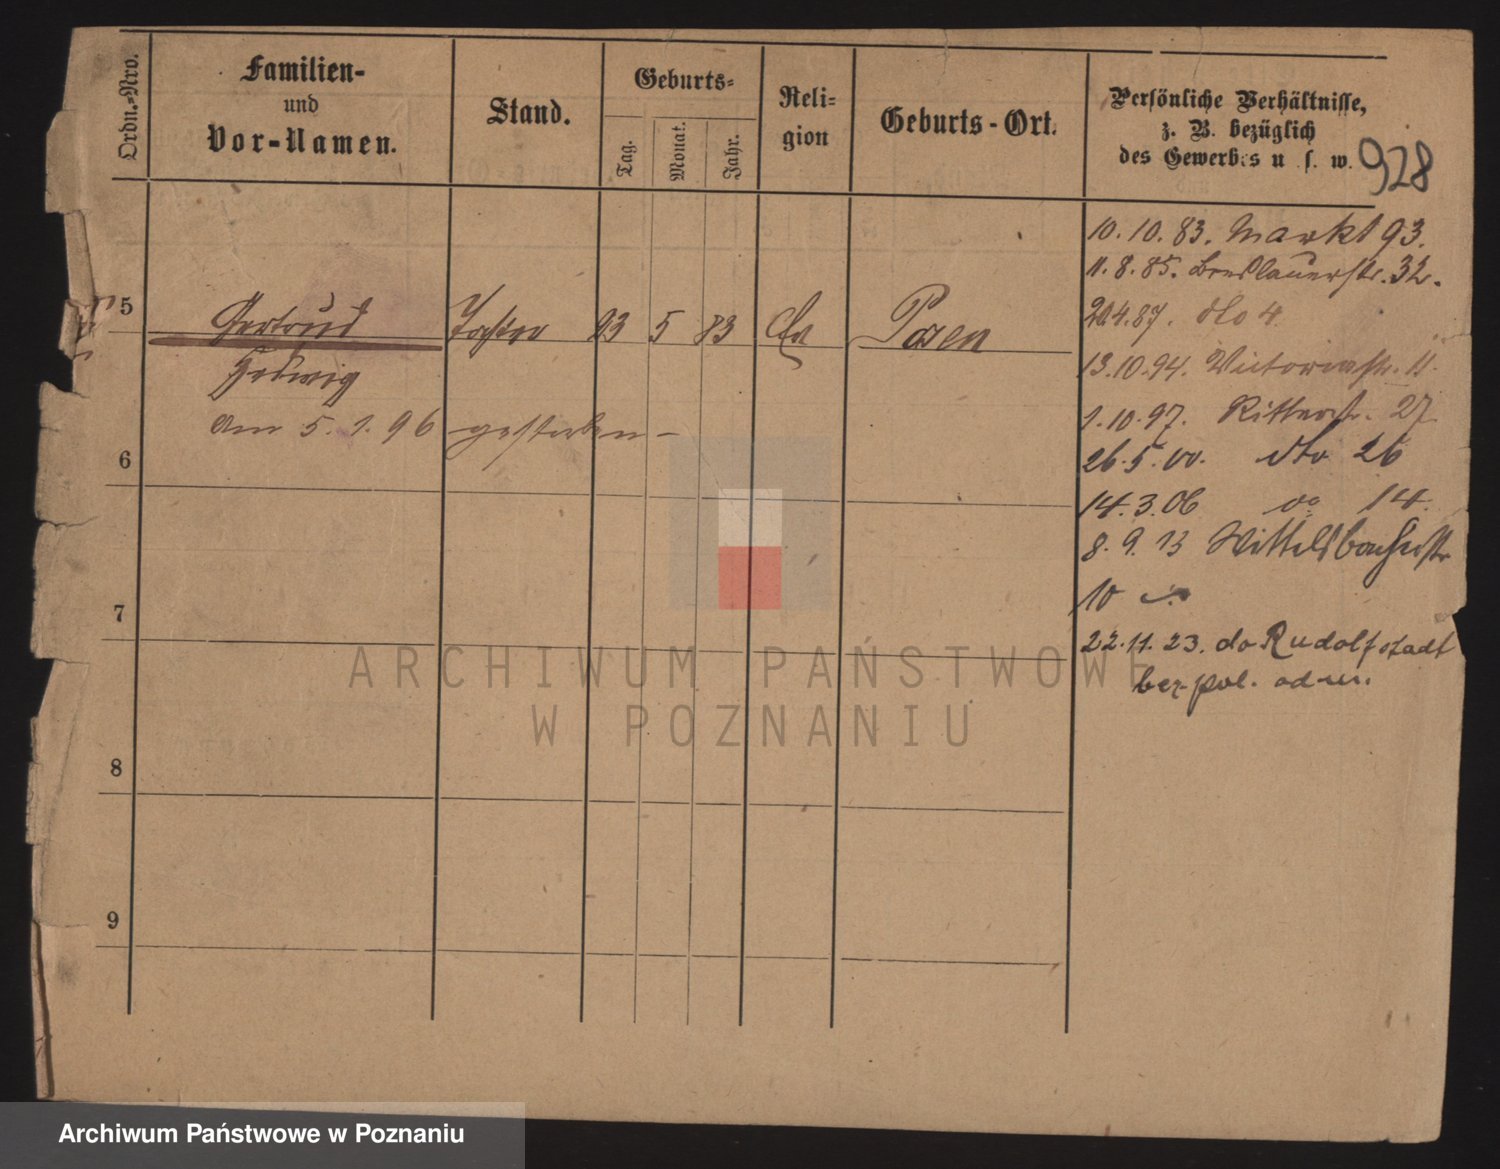 Ordn.-Nro.
Familien-
und
Vor-Namen.
Stand.
Geburts-
Tag.
Monat.
Jahr.
Reli-
gion
Geburts-Ort.
Persönliche Verhältnisse,
z. B. bezüglich
des Gewerbes u. s. w.
928
10. 10. 83. Markt 93.
11. 8. 85. Breslauerstr. 32.
5 Gertrud Tochter 23 5 83 Posen
Hedwig
20.4.87. dto 4.
13.10.94. Victoriastr. 11.
am 5. 1. 96 gestorben –
1.10.97. Ritterstr. 27
6
26.5.00. dto 26
14.3.06 do 14.
8. 9. 13 Wittelsbacherstr
10
7
22.11.23. do Rudolfstadt
bez pol. odm.
8
9
ARCHIWUM PAŃSTWOWE
W POZNANIU
Archiwum Państwowe w Poznaniu